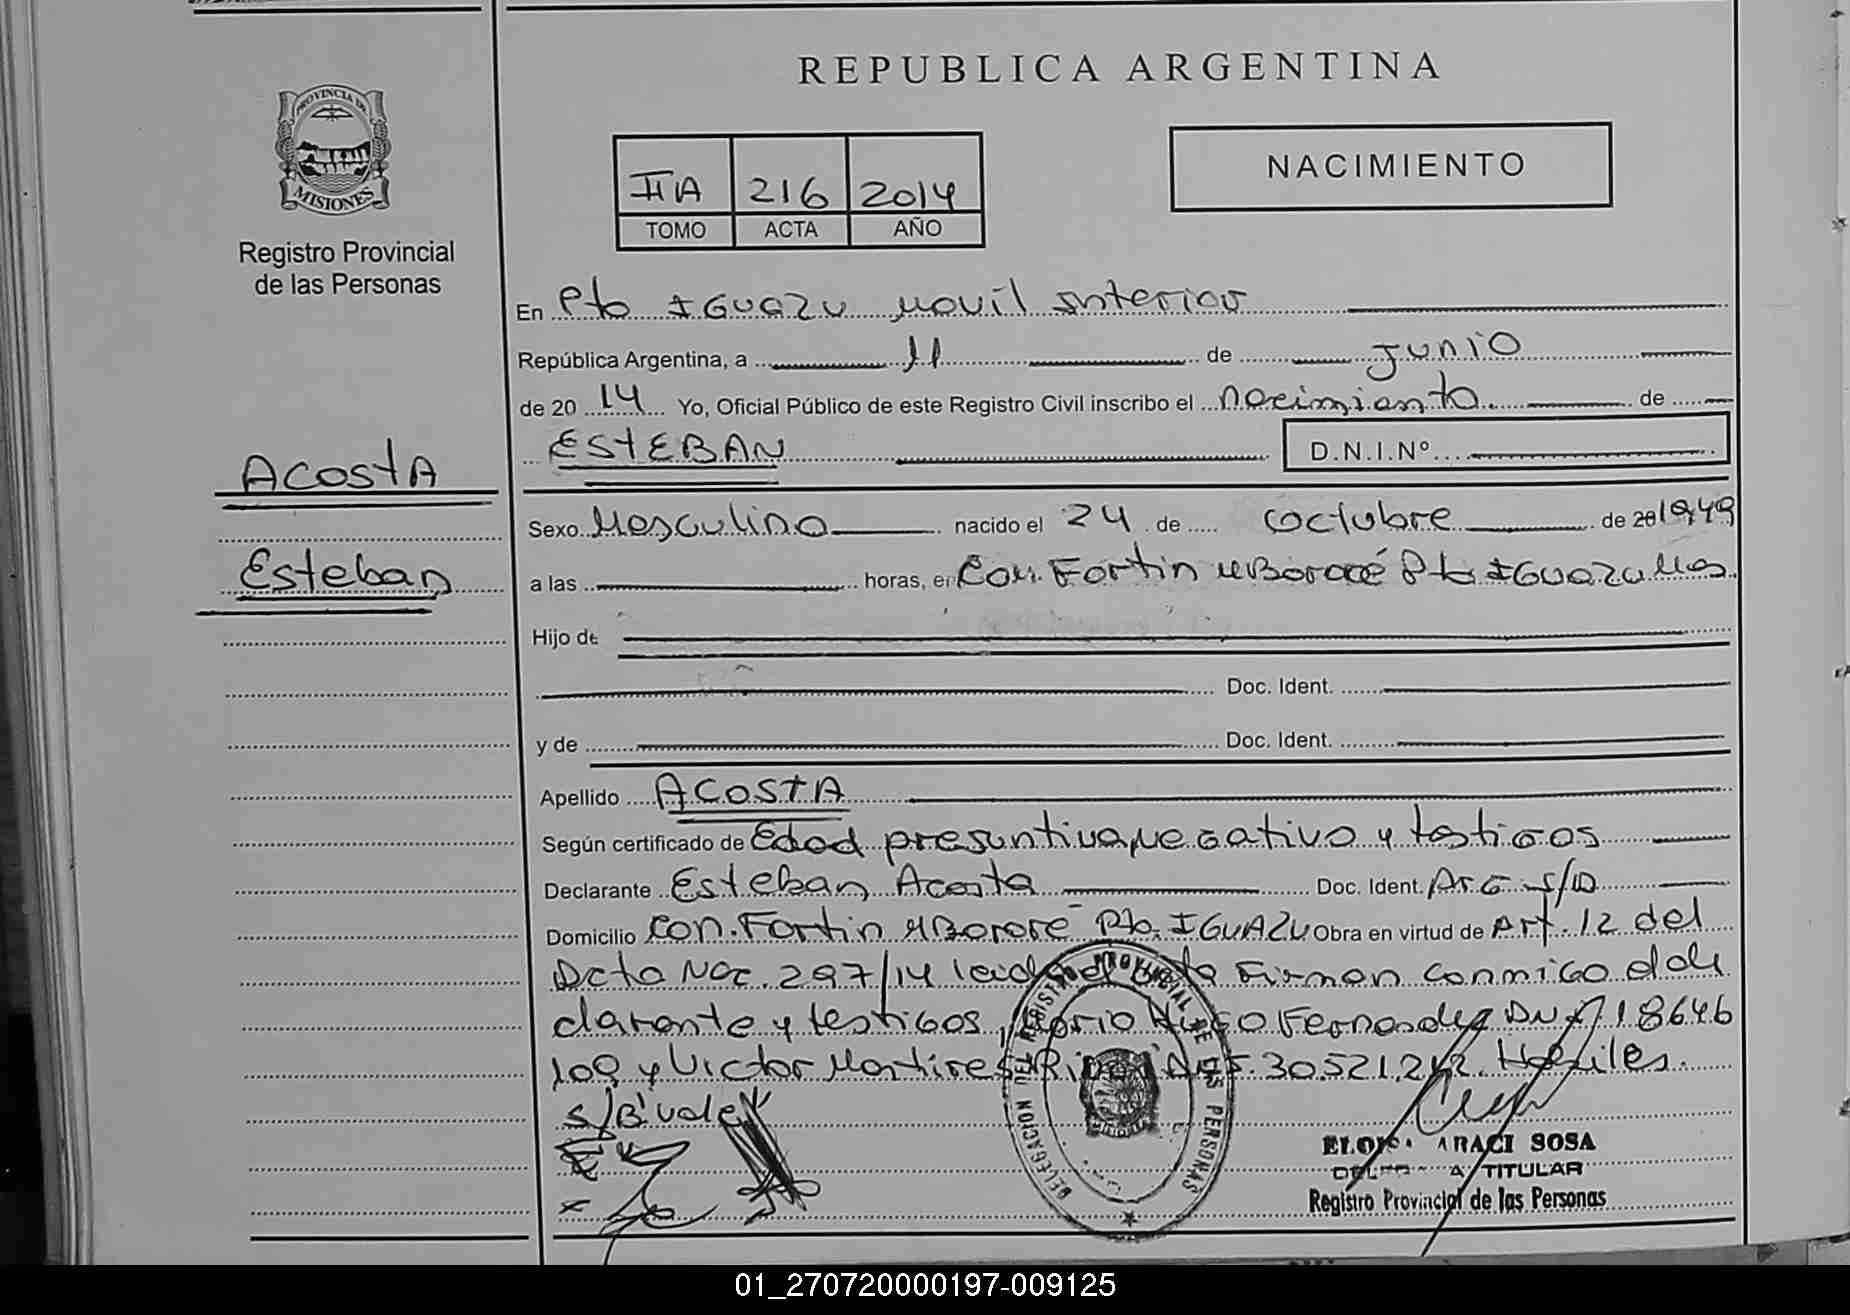 REPUBLICA ARGENTINA
PROVINCIA DE
MISIONES
Registro Provincial
de las Personas
NACIMIENTO
IIA 216 2014
TOMO ACTA AÑO
En Pto IGUAZU Movil Interior
República Argentina, a 11 de Junio
de 20 14 Yo, Oficial Público de este Registro Civil inscribo el nacimiento de
ESTEBAN D.N.I.Nº
ACOSTA
Esteban
Sexo Masculino nacido el 24 de Octubre de 20 1949
a las horas, en Com. Fortin MBororé Pto IGUAZU Mes.
Hijo de
Doc. Ident.
y de Doc. Ident.
Apellido ACOSTA
Según certificado de Edad presuntiva, negativo y testigos
Declarante Esteban Acosta Doc. Ident. Arg S/D
Domicilio Con. Fortin MBororé Pto. IGUAZU Obra en virtud de Art. 12 del
Dcto Nac. 297/14 leida el acta Firman conmigo el de
clarante y testigos, Hugo Fernandez DNI 18646
109 y Victor Martires DNI 30.521.242. Habiles.
S/B' vale
DELEGACION DEL REGISTRO PROVINCIAL DE LAS PERSONAS
MISIONES
ARACI SOSA
TITULAR
Registro Provincial de las Personas
01_270720000197-009125